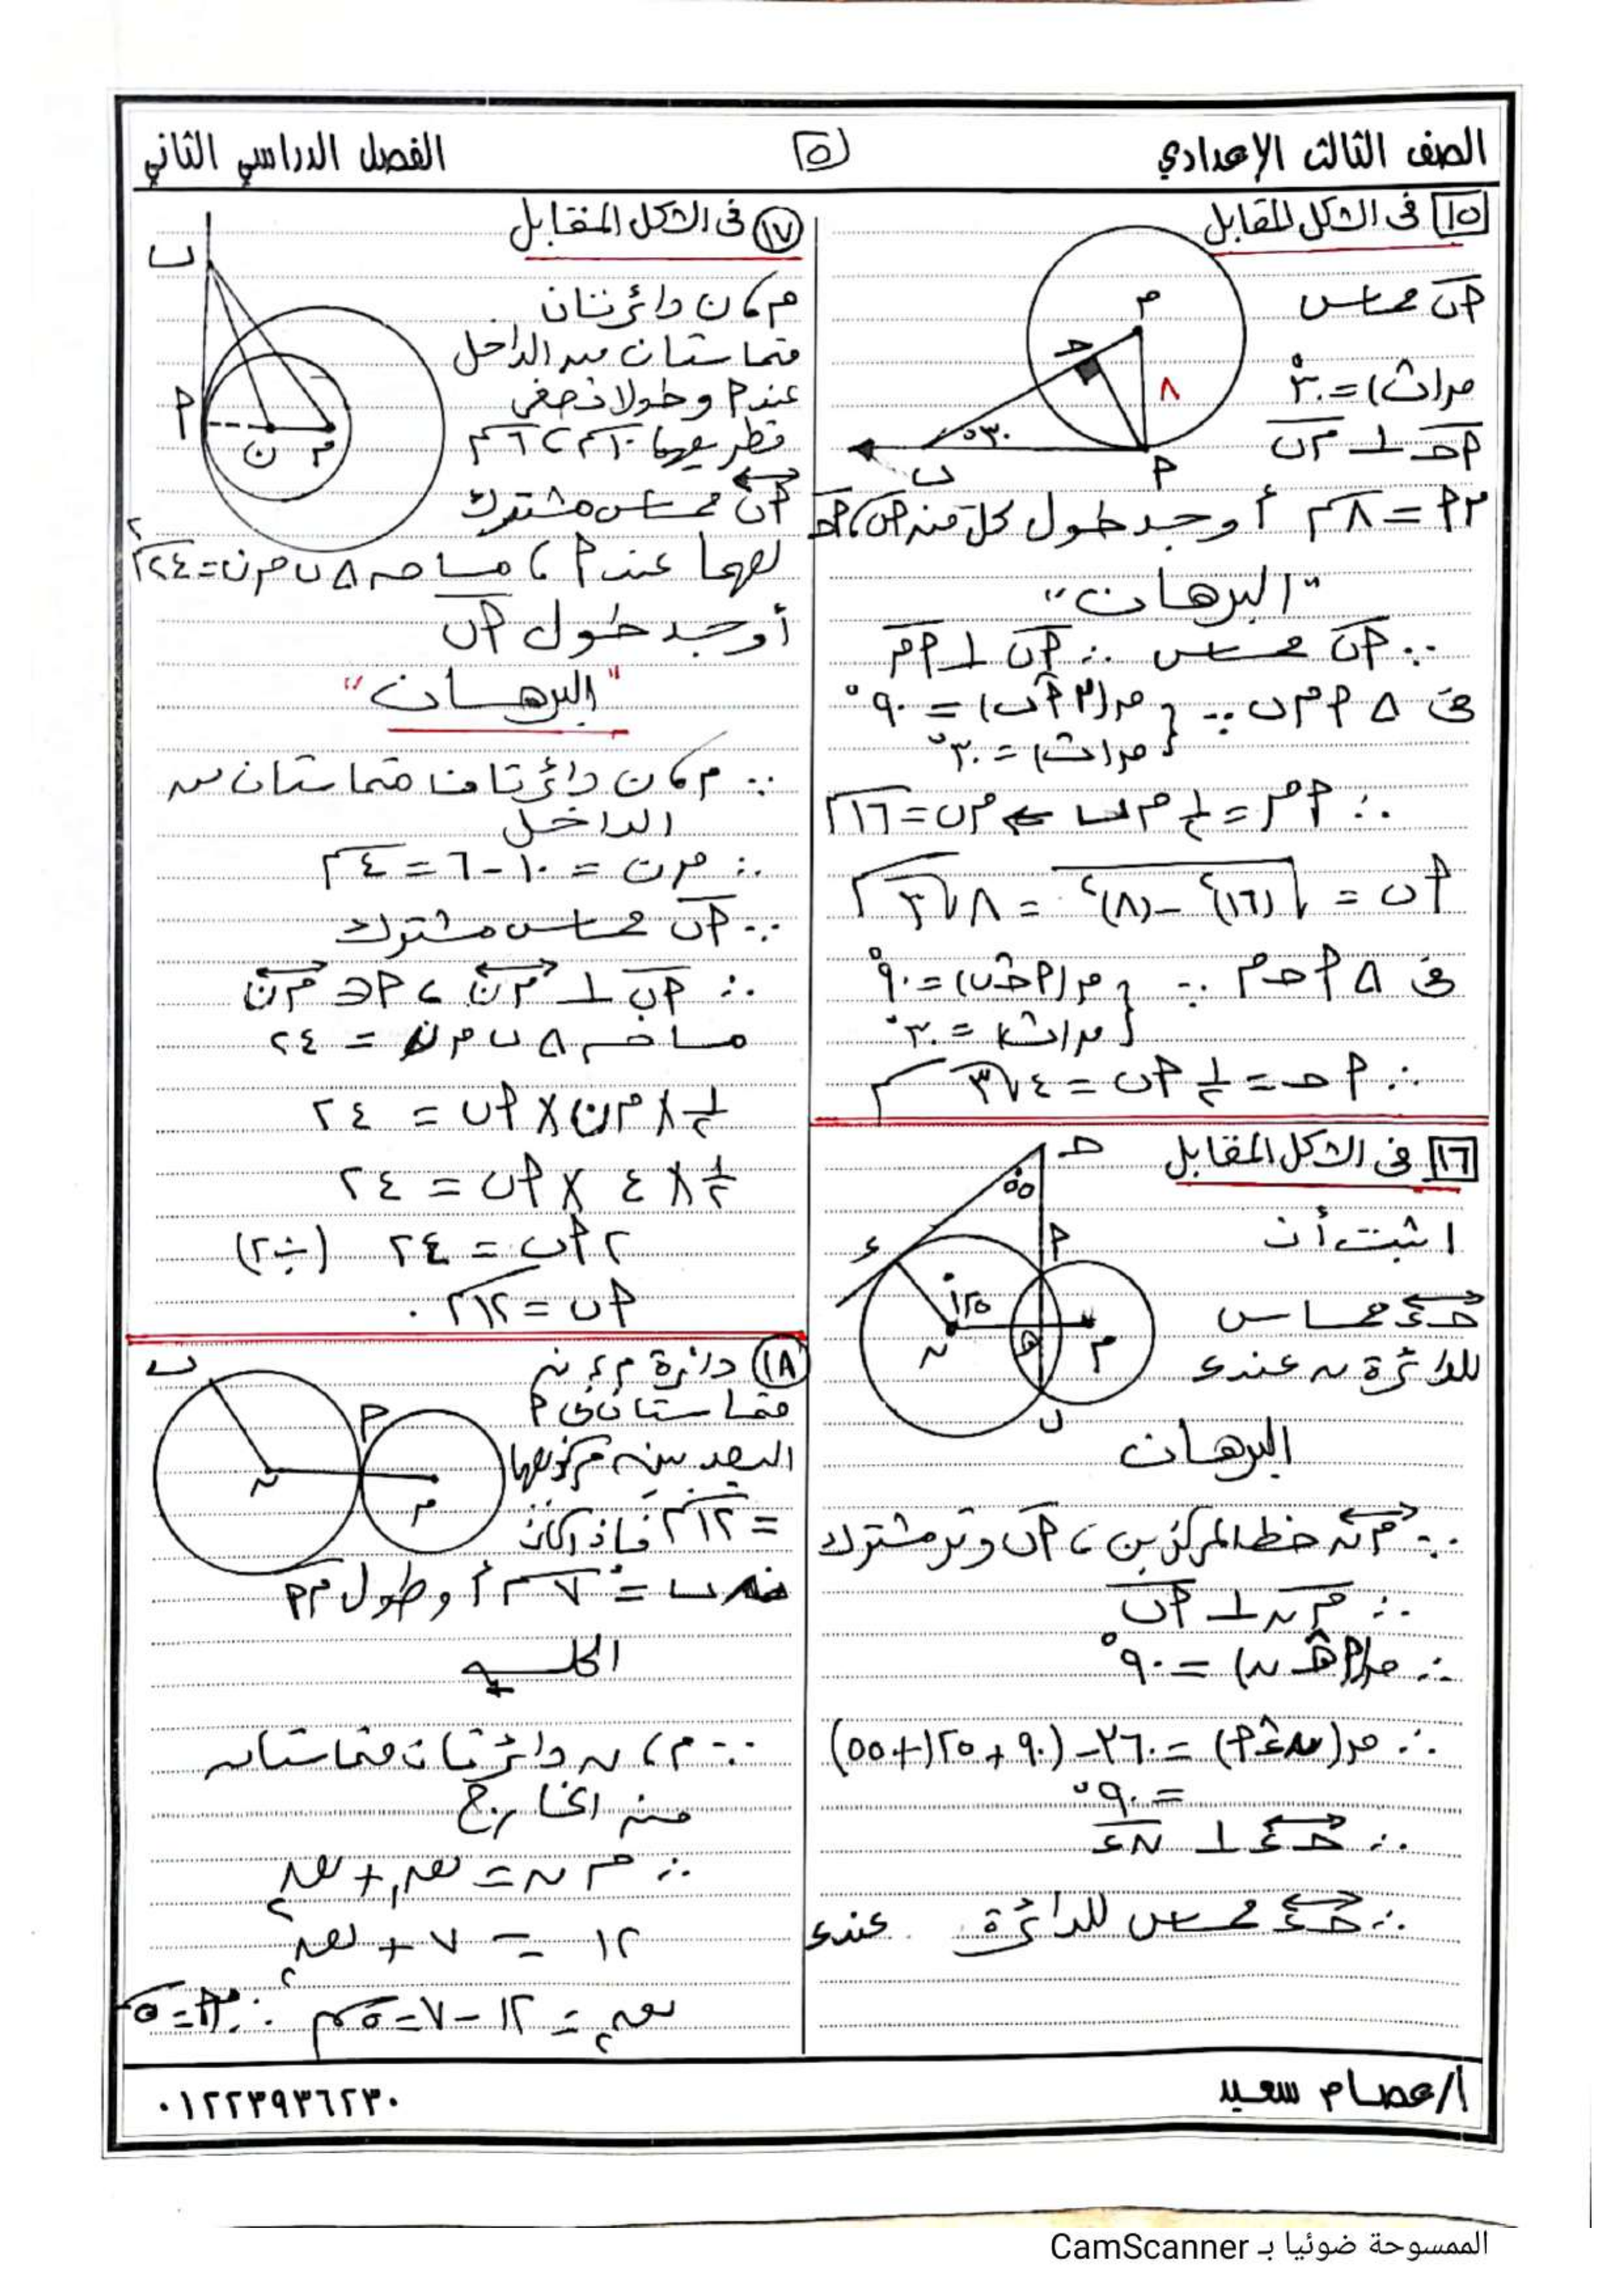 الصف الثالث الإعدادي
٥
الفصل الدراسي الثاني
١٥ فى الشكل المقابل
أب مماس
ق(ب) = ٣٠°
أحـ ⊥ مب
م أ = ٨سم أوجد طول كل من أب، أحـ
م
حـ
٨
٣٠°
ب
أ
"البرهان"
∵ أب مماس ∴ أب ⊥ أم
فى Δ أم ب ∵ { ق(م أ ب) = ٩٠°
ق(ب) = ٣٠°
∴ أم = ½ م ب ⇐ م ب = ١٦سم
أب = √(١٦)² - (٨)² = ٨√٣ سم
فى Δ أحـ م ∵ { ق(أحـ ب) = ٩٠°
ق(ب) = ٣٠°
∴ أحـ = ½ أب = ٤√٣ سم
١٦ فى الشكل المقابل
اثبت أن
حـء مماس
للدائرة ن عند ء
حـ
٥٥°
أ
ء
١٢٥°
ن
هـ
م
ب
البرهان
∵ م ن خط المركزين ، أب وتر مشترك
∴ م ن ⊥ أب
∴ ق(أهـ ن) = ٩٠°
∴ ق(ن ء أ) = ٣٦٠ - (٩٠ + ١٢٥ + ٥٥)
= ٩٠°
∴ حـء ⊥ ن ء
∴ حـء مماس للدائرة عند ء
١٧ فى الشكل المقابل
م، ن دائرتان
متماستان من الداخل
عند أ وطولا نصفى
قطريهما ١٠سم ، ٦سم
أب مماس مشترك
لهما عند أ ، مساحة Δ ب م ن = ٢٤سم²
أوجد طول أب
ب
أ
ن
م
"البرهان"
∵ م، ن دائرتان متماستان من
الداخل
∴ م ن = ١٠ - ٦ = ٤سم
∵ أب مماس مشترك
∴ أب ⊥ م ن ، أ ∈ م ن
مساحة Δ ب م ن = ٢٤
½ × م ن × أب = ٢٤
½ × ٤ × أب = ٢٤
٢ أب = ٢٤ (÷٢)
أب = ١٢سم
١٨ دائرة م، ن
متماستان فى أ
البعد بين مركزيهما
= ١٢سم فإذا كان
ن ب = ٧سم أوجد طول م أ
ب
أ
ن
م
الحل
∵ م، ن دائرتان متماستان
من الخارج
∴ م ن = نق١ + نق٢
١٢ = ٧ + نق٢
نق٢ = ١٢ - ٧ = ٥سم ∴ م أ = ٥سم
أ/عصام سعيد
٠١٢٢٣٩٣٦٢٣٠
الممسوحة ضوئيا بـ CamScanner